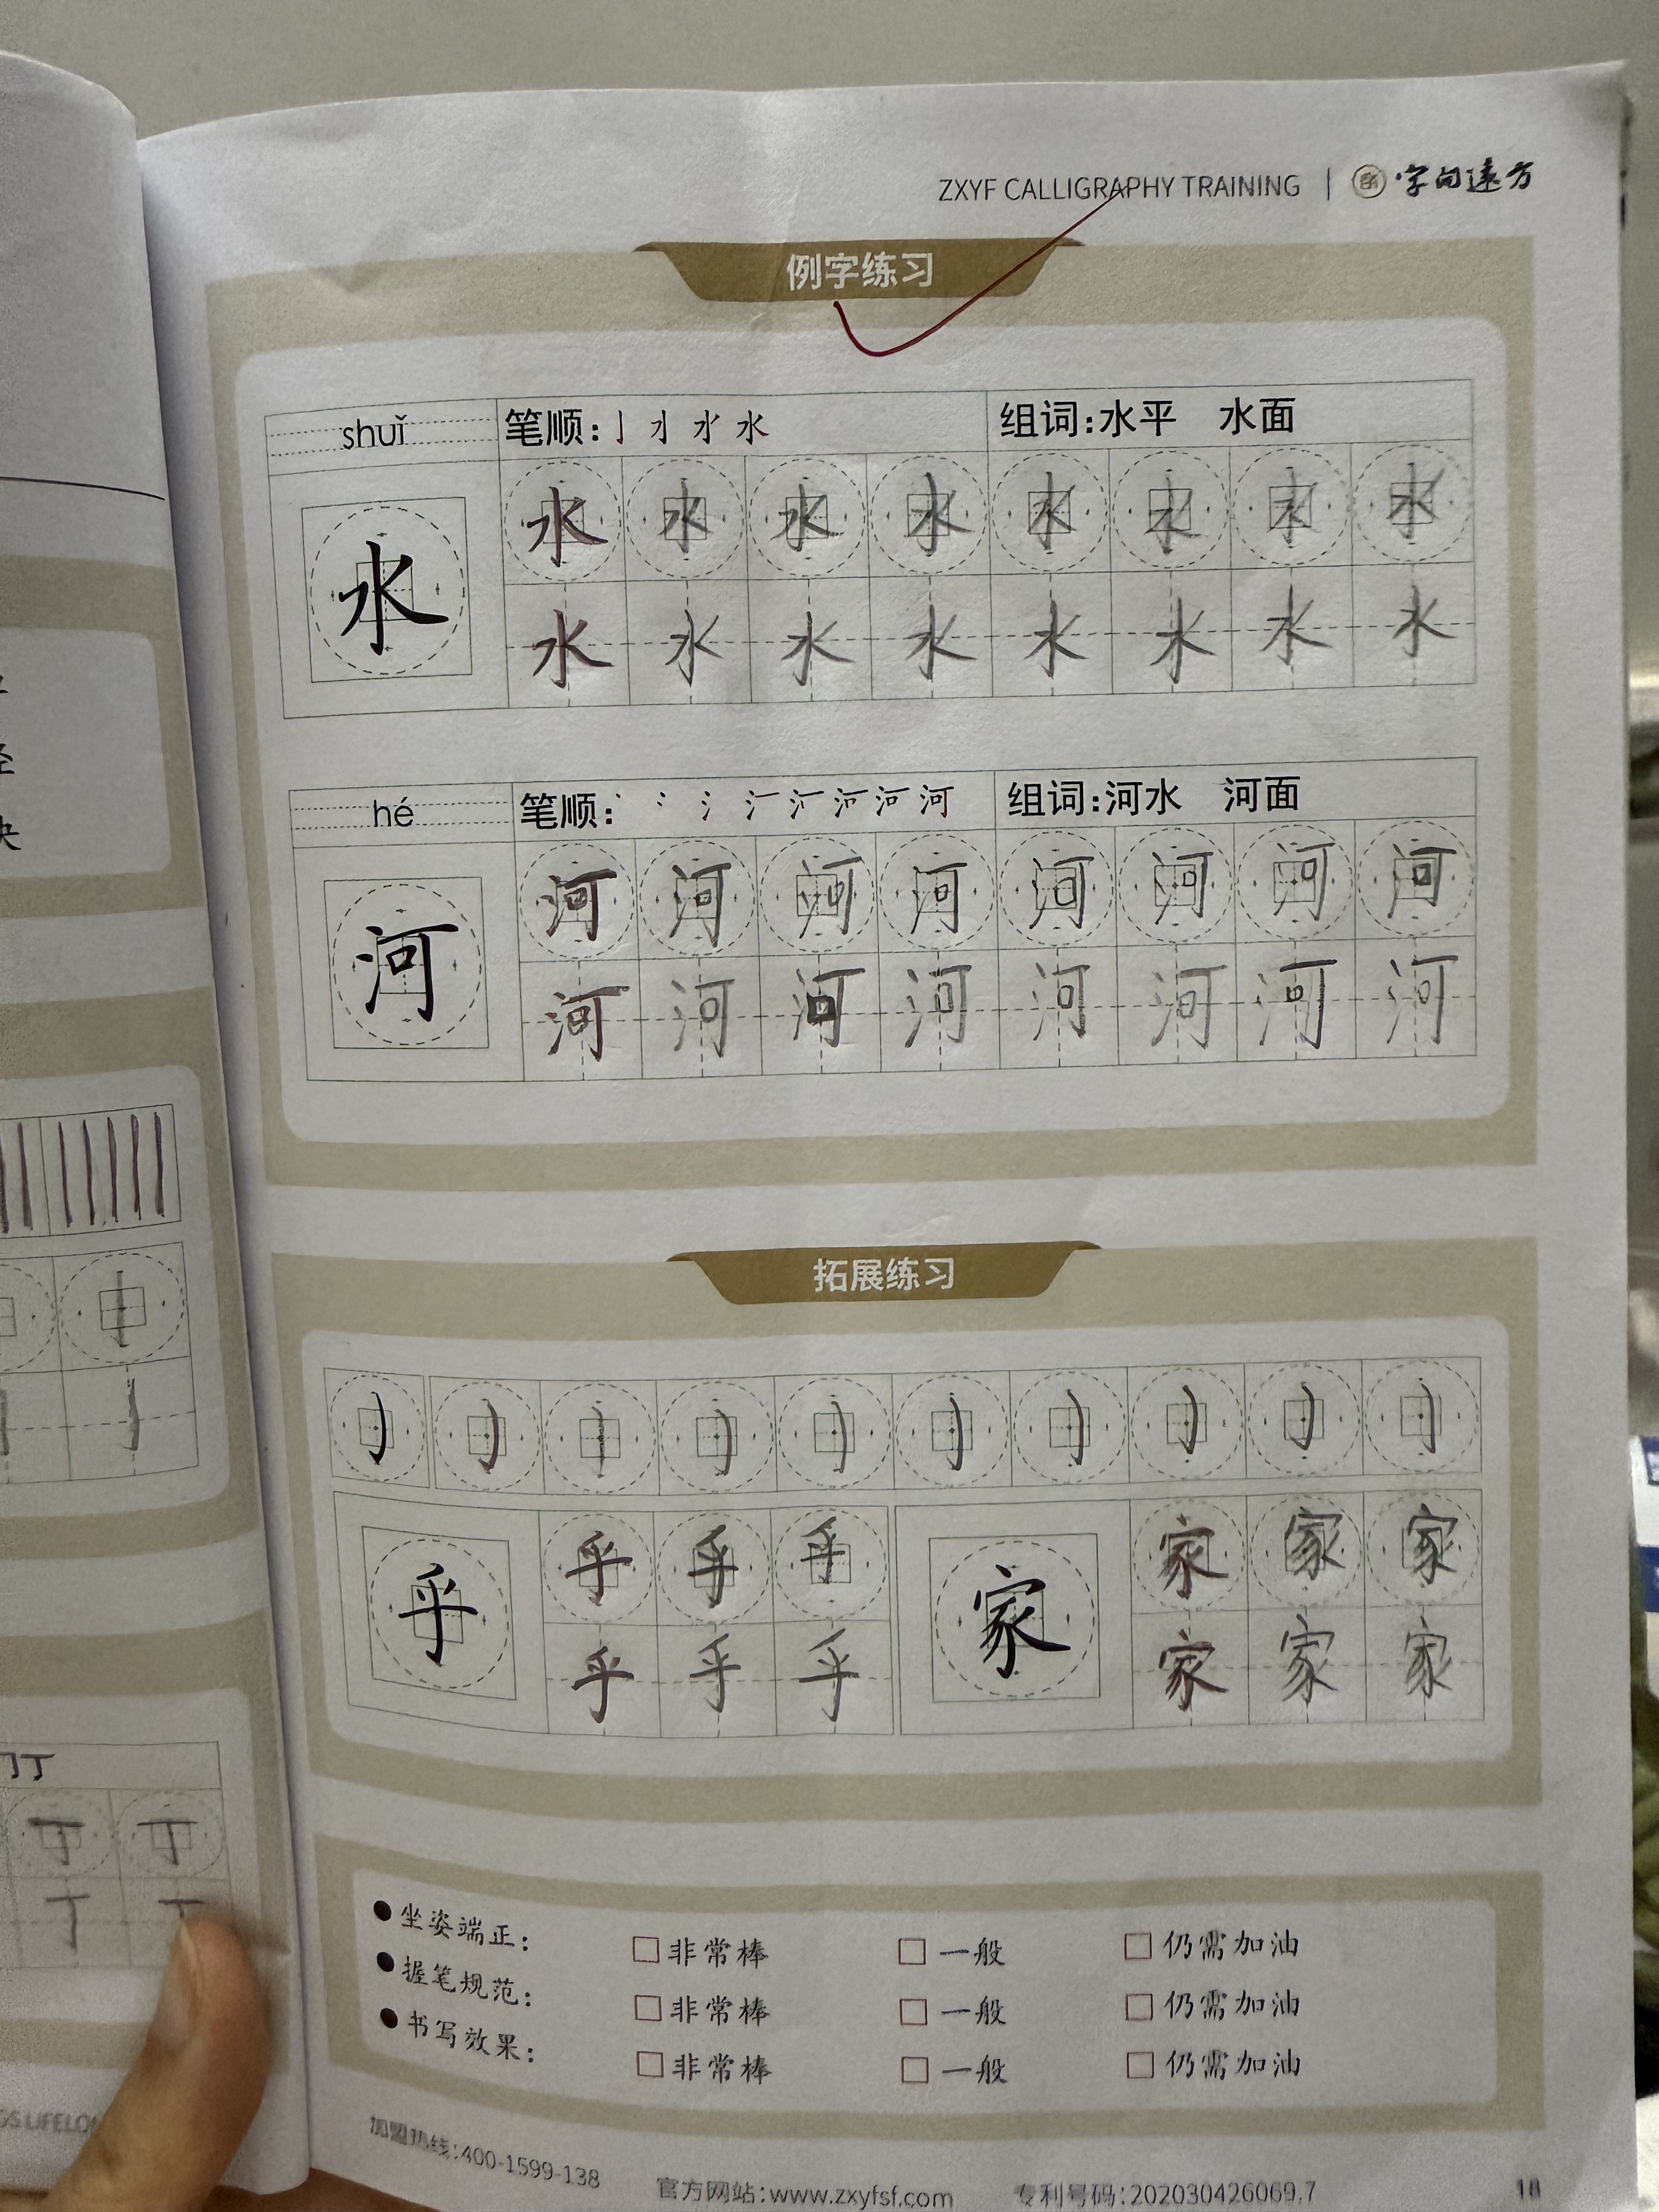 ZXYF CALLIGRAPHY TRAINING | 字向远方
例字练习
shuǐ 笔顺: 亅 水 组词:水平 水面
水 水 水 水 水 水 水 水 水
水 水 水 水 水 水 水 水
hé 笔顺: 丶 冫 氵 河 组词:河水 河面
河 河 河 河 河 河 河 河 河
河 河 河 河 河 河 河 河
拓展练习
乎 乎 乎 乎 家 家 家 家
乎 乎 乎 家 家 家
丁 丁
丁 丁
●坐姿端正: □非常棒 □一般 □仍需加油
●握笔规范: □非常棒 □一般 □仍需加油
●书写效果: □非常棒 □一般 □仍需加油
加盟热线:400-1599-138 官方网站:www.zxyfsf.com 专利号码:202030426069.7